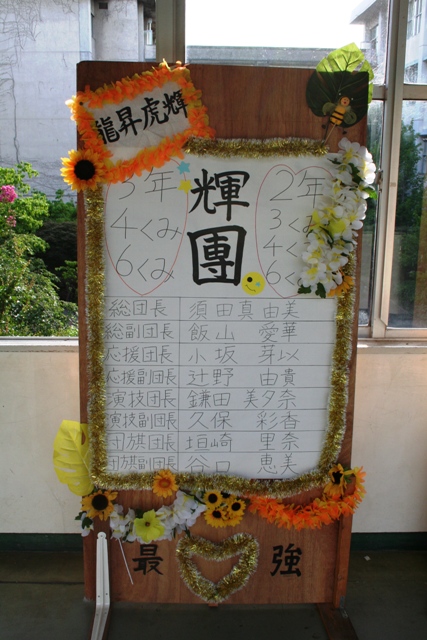 龍昇虎輝
輝團
3年
4くみ
6くみ
2年
3く
4く
6く
総団長 須田真由美
総副団長 飯山 愛華
応援団長 小坂 芽以
応援副団長 辻野 由貴
演技団長 鎌田美夕奈
演技副団長 久保 彩杏
団旗団長 垣崎 里奈
団旗副団長 谷口 恵美
最強